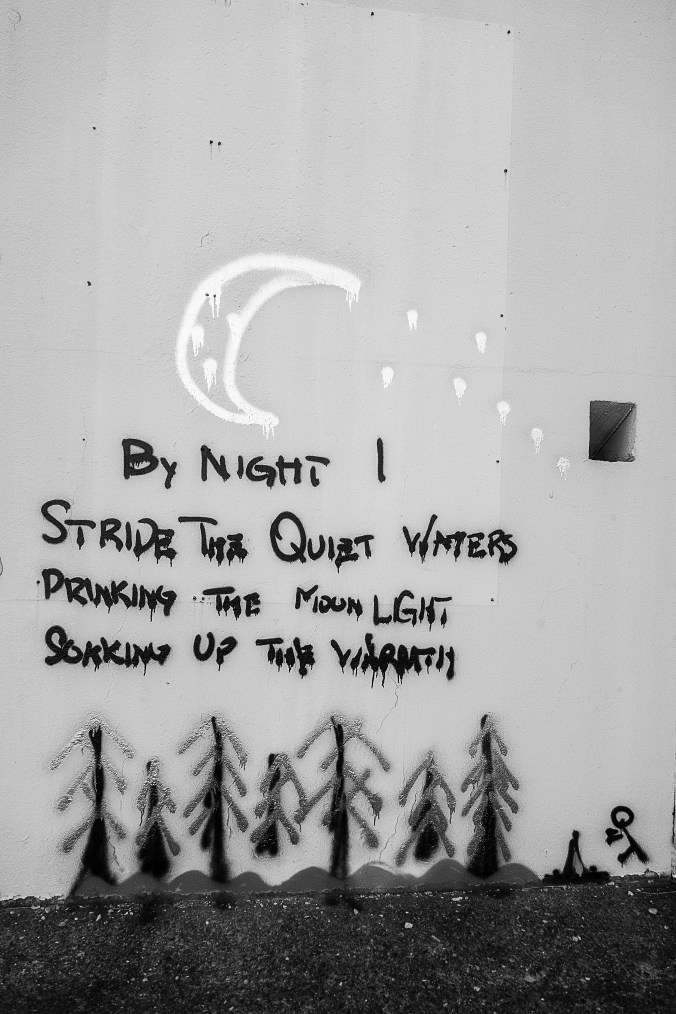 BY NIGHT I
STRIDE THE QUIET WATERS
DRINKING THE MOON LGHT
SOAKING UP THE WARMTH